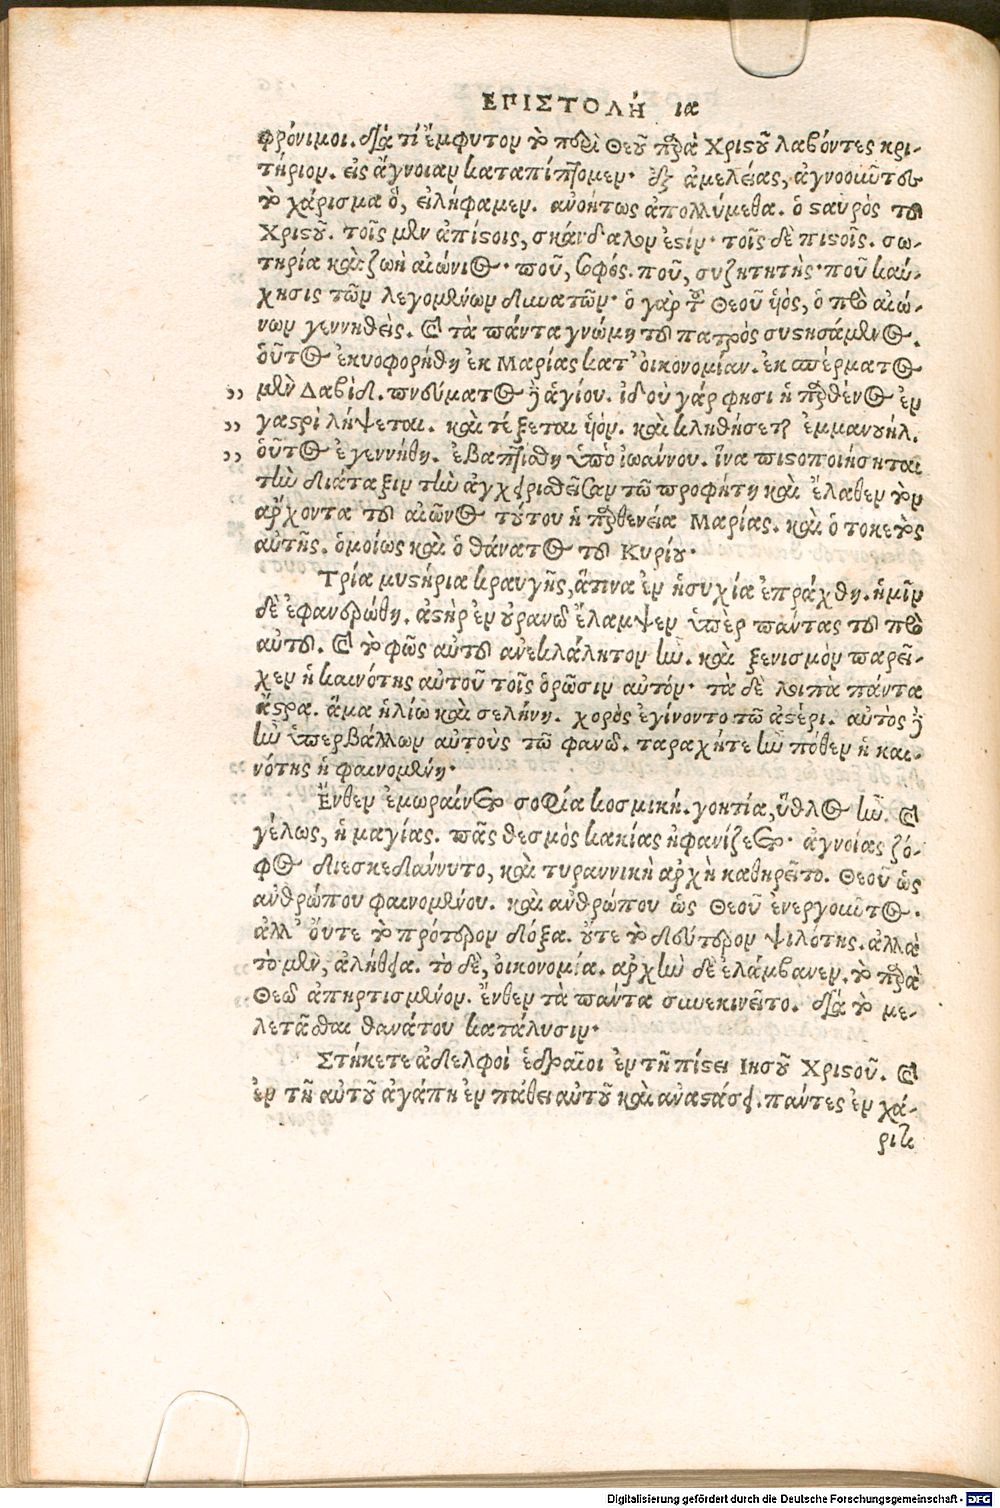 ΕΠΙΣΤΟΛΗ ια
φρόνιμοι. διὰ τί ἔμφυτον τὸ περὶ Θεοῦ παρὰ Χριςοῦ λαβόντες κρι-
τήριον. εἰς ἄγνοιαν καταπίπτομεν. ἐξ ἀμελείας, ἀγνοοῦντες
τὸ χάρισμα ὅ, εἰλήφαμεν. ανοήτως ἀπολλύμεθα. ὁ ςαυρὸς τοῦ
Χριςοῦ. τοῖς μὲν ἀπίςοις, σκάνδαλον ἐςίν. τοῖς δὲ πιςοῖς. σω-
τηρία καὶ ζωὴ αἰώνιος. ποῦ, σοφός. ποῦ, συζητητής. ποῦ καύ-
χησις τῶν λεγομένων δυνατῶν. ὁ γὰρ τοῦ Θεοῦ ὑός, ὁ πρὸ αἰώ-
νων γεννηθεὶς. καὶ τὰ πάντα γνώμη τοῦ πατρὸς συςησάμενος.
οὗτος ἐκυοφορήθη ἐκ Μαρίας κατ' οἰκονομίαν. ἐκ σπέρματος
μὲν Δαβὶδ. πνεύματος δὲ ἁγίου. ἰδοὺ γάρ φησι ἡ παρθένος ἐν
γαςρὶ λήψεται. καὶ τέξεται ὑόν. καὶ κληθήσεται ἐμμανουήλ.
οὗτος ἐγεννήθη. ἐβαπτίσθη ὑπὸ ἰωάννου. ἵνα πιςοποιήσηται
τὴν διάταξιν τὴν ἀγχειρισθεῖσαν τῶ προφήτη καὶ ἔλαθεν τὸν
ἄρχοντα τοῦ αἰῶνος τούτου ἡ παρθενεία Μαρίας. καὶ ὁ τοκετὸς
αὐτῆς. ὁμοίως καὶ ὁ θάνατος τοῦ Κυρίου.
Τρία μυςήρια κραυγῆς, ἅτινα ἐν ἡσυχία ἐπράχθη. ἡμῖν
δὲ ἐφανερώθη. ἀςὴρ ἐν οὐρανῶ ἔλαμψεν ὑπὲρ πάντας τοὺς πρὸ
αὐτοῦ. καὶ τὸ φῶς αὐτοῦ ἀνεκλάλητον ἦν. καὶ ξενισμὸν παρεῖ-
χεν ἡ καινότης αὐτοῦ τοῖς ὁρῶσιν αὐτόν. τὰ δὲ λοιπὰ πάντα
ἄςρα. ἅμα ἡλίω καὶ σελήνη. χορὸς ἐγίνοντο τῶ ἀςέρι. αὐτὸς δὲ
ἦν ὑπερβάλλων αὐτοὺς τῶ φανῶ. ταραχήτε ἦν πόθεν ἡ και-
νότης ἡ φαινομένη.
Ἔνθεν ἐμωραίνετο σοφία κοσμική. γοητία, ὕθλος ἦν. καὶ
γέλως, ἡ μαγίας. πᾶς θεσμὸς κακίας ἠφανίζετο. ἀγνοίας ζό-
φος διεσκεδάννυτο, καὶ τυραννικὴ ἀρχὴ καθηρεῖτο. Θεοῦ ὡς
ἀνθρώπου φαινομένου. καὶ ἀνθρώπου ὡς Θεοῦ ἐνεργοῦντος.
ἀλλ' οὔτε τὸ πρότερον δόξα. οὔτε τὸ δεύτερον ψιλότης. ἀλλὰ
τὸ μὲν, ἀλήθεια. τὸ δὲ, οἰκονομία. ἀρχὴν δὲ ἐλάμβανεν. τὸ παρὰ
Θεῶ ἀπηρτισμένον. ἔνθεν τὰ πάντα συνεκινεῖτο. διὰ τὸ με-
λετᾶσθαι θανάτου κατάλυσιν.
Στήκετε ἀδελφοὶ ἑδραῖοι ἐν τῆ πίςει Ιησοῦ Χριςοῦ. καὶ
ἐν τῆ αὐτοῦ ἀγάπη ἐν πάθει αὐτοῦ καὶ ἀναςάσει. πάντες ἐν χά-
ριτι
Digitalisierung gefördert durch die Deutsche Forschungsgemeinschaft - DFG